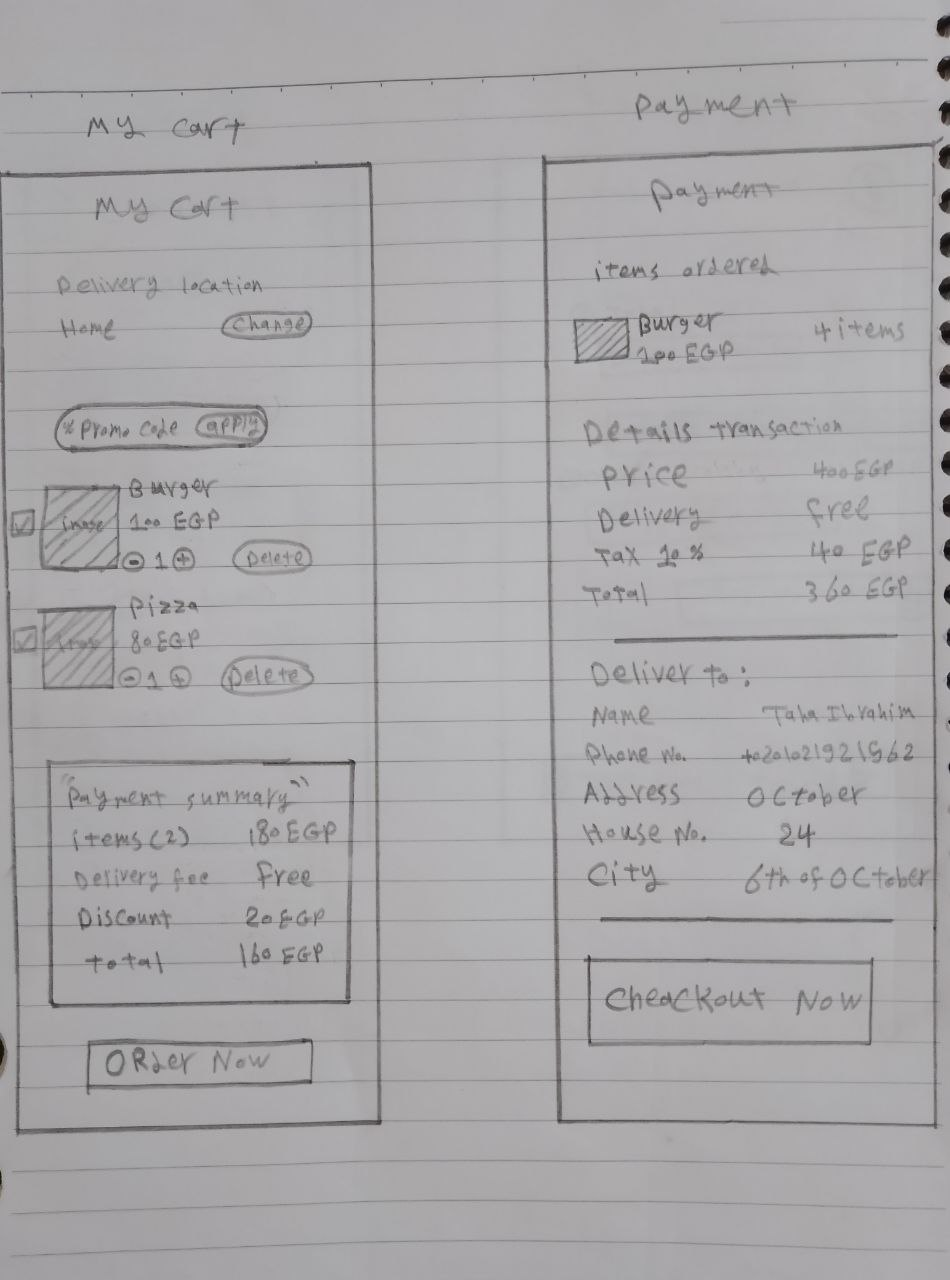 My cart
My Cart
Delivery location
Home Change
% Promo code apply
Burger
image 100 EGP
- 1 + Delete
Pizza
image 80 EGP
- 1 + Delete
"Payment summary"
items (2) 180 EGP
Delivery fee Free
Discount 20 EGP
total 160 EGP
ORder Now
Payment
Payment
items ordered
Burger 4 items
100 EGP
Details transaction
Price 400 EGP
Delivery free
Tax 10 % 40 EGP
Total 360 EGP
Deliver to:
Name Taha Ibrahim
Phone No. +0201021921562
Address October
House No. 24
City 6th of October
Cheackout Now